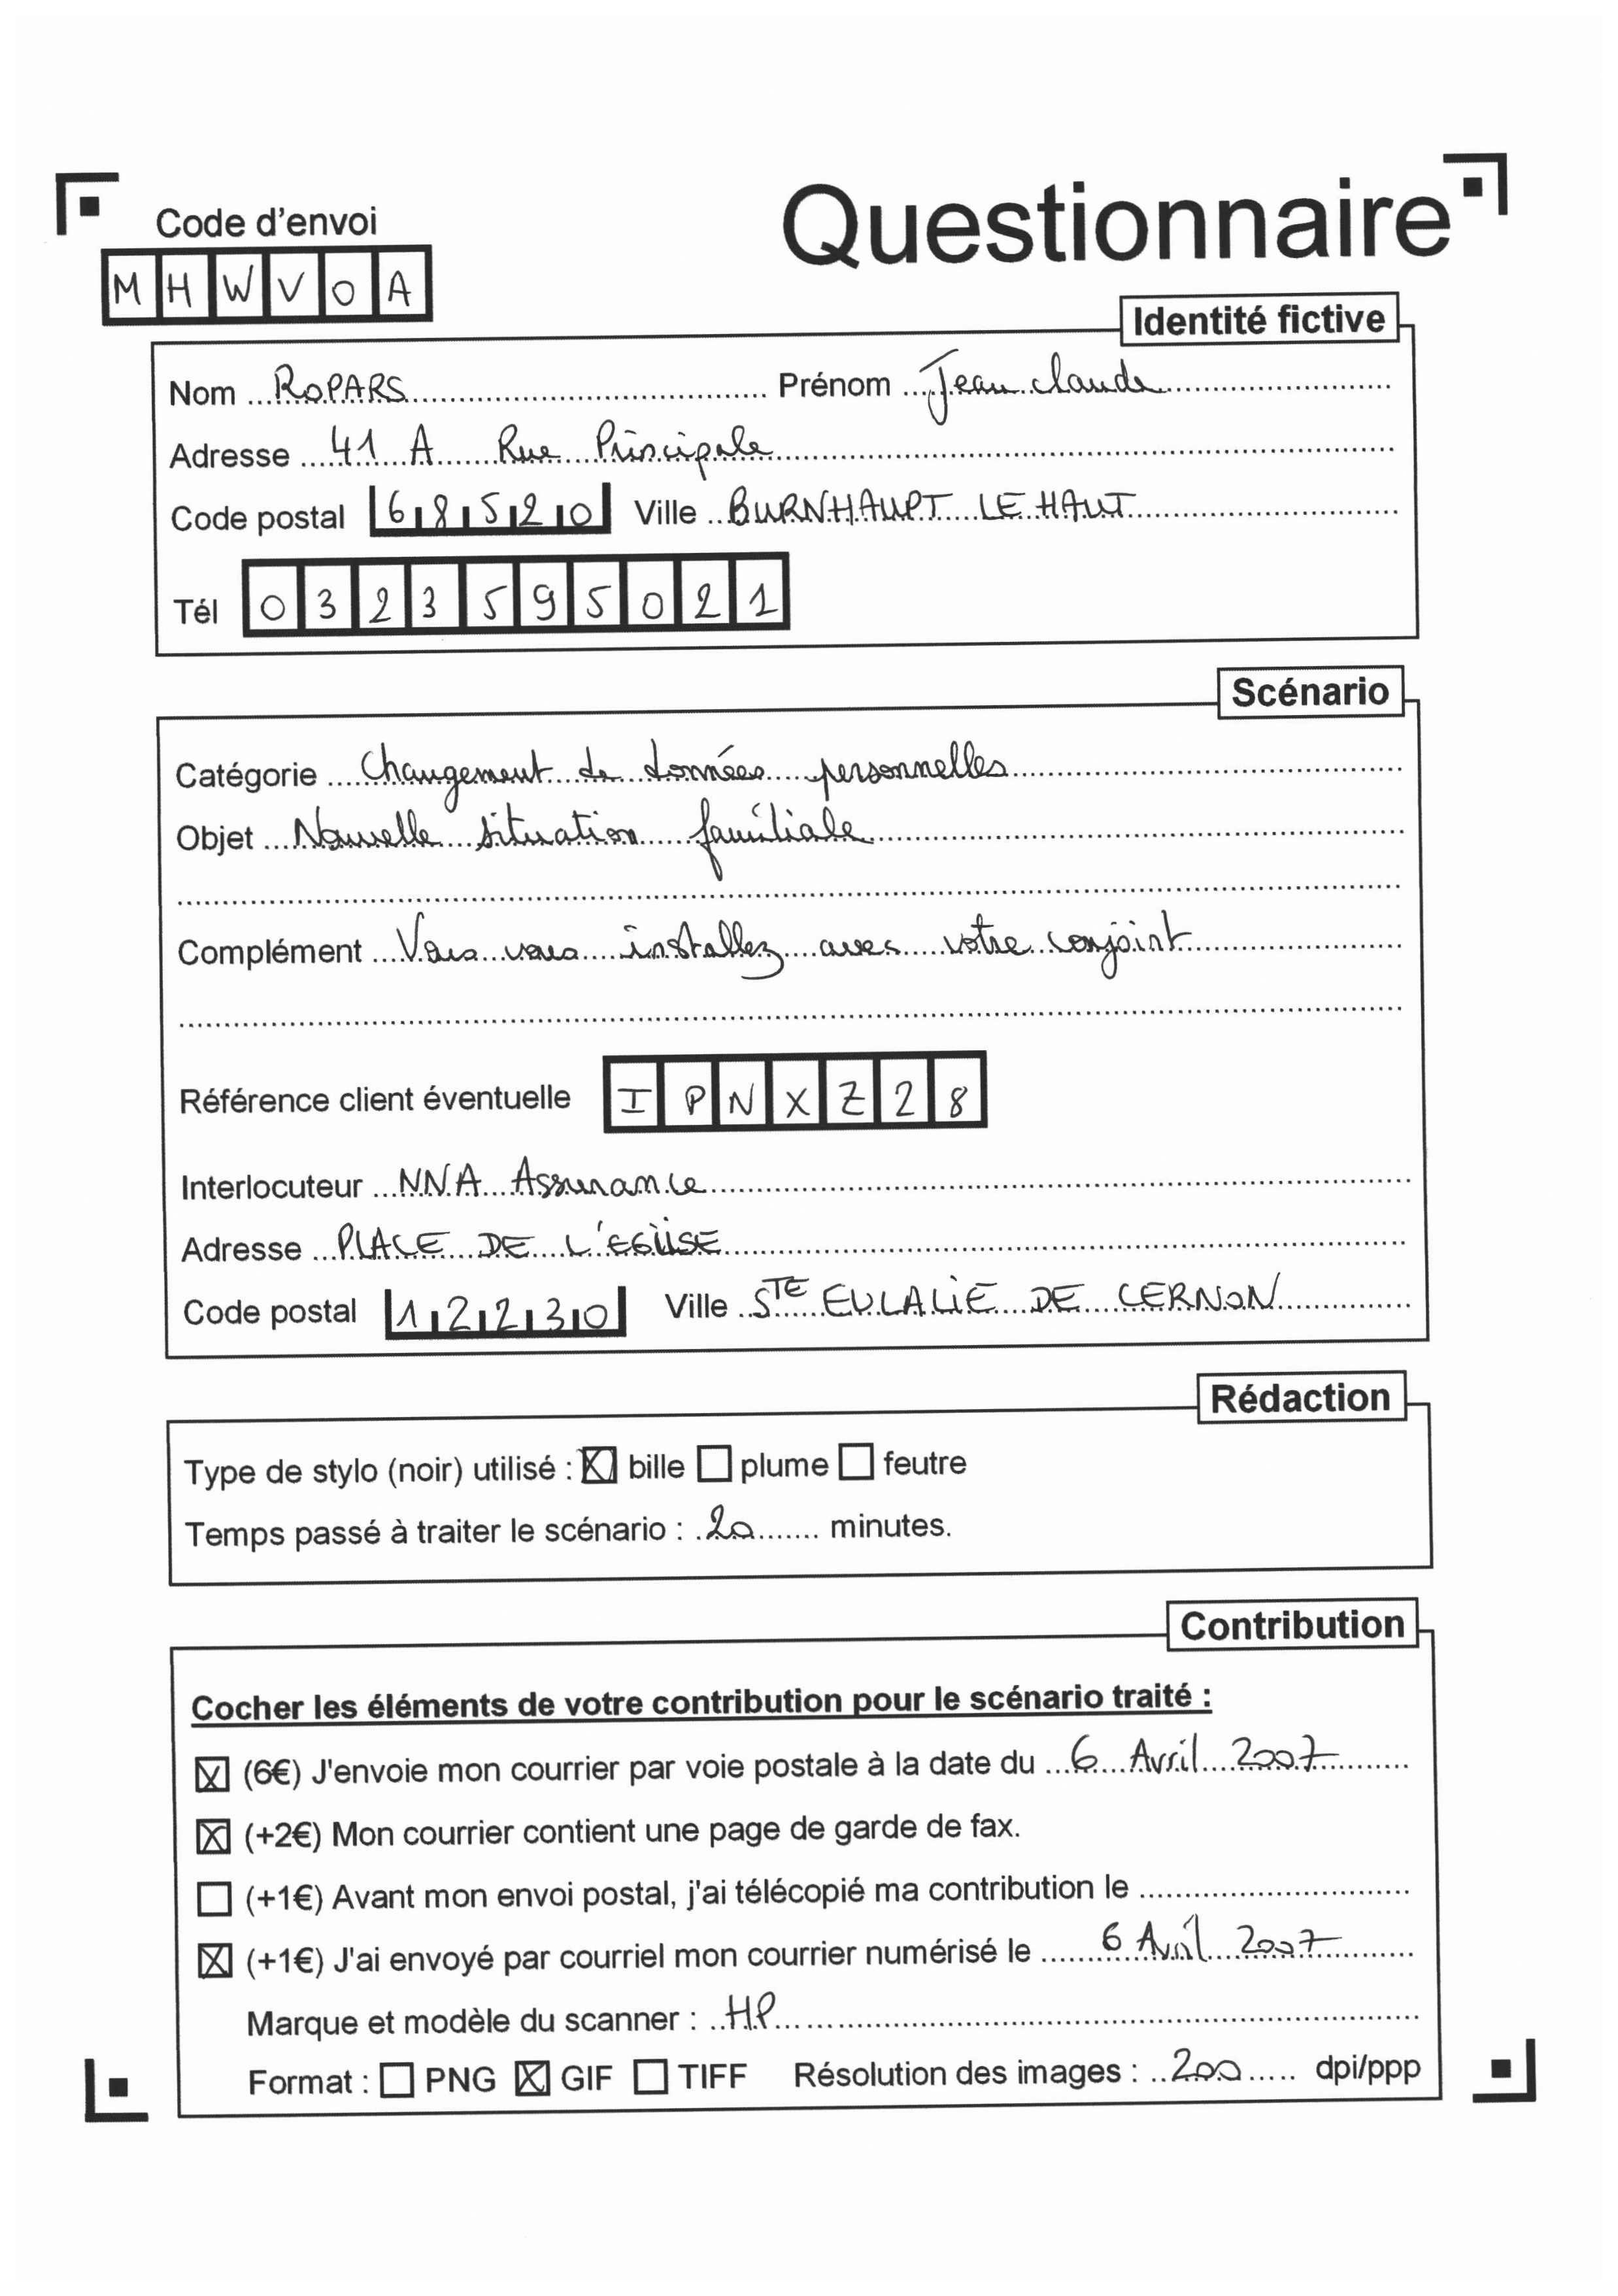 Questionnaire
Code d'envoi
M H W V O A
Identité fictive
Nom ROPARS Prénom Jean claude
Adresse 41 A Rue Principale
Code postal 68520 Ville BURNHAUPT LE HAUT
Tél 0323595021
Scénario
Catégorie Changement de données personnelles
Objet Nouvelle situation familiale
Complément Vous vous installez avec votre conjoint
Référence client éventuelle I P N X Z 2 8
Interlocuteur NNA Assurance
Adresse PLACE DE L'EGLISE
Code postal 12230 Ville STE EULALIE DE CERNON
Rédaction
Type de stylo (noir) utilisé : ☒ bille ☐ plume ☐ feutre
Temps passé à traiter le scénario : 20 minutes.
Contribution
Cocher les éléments de votre contribution pour le scénario traité :
☒ (6€) J'envoie mon courrier par voie postale à la date du 6 Avril 2007
☒ (+2€) Mon courrier contient une page de garde de fax.
☐ (+1€) Avant mon envoi postal, j'ai télécopié ma contribution le
☒ (+1€) J'ai envoyé par courriel mon courrier numérisé le 6 Avril 2007
Marque et modèle du scanner : HP
Format : ☐ PNG ☒ GIF ☐ TIFF Résolution des images : 200 dpi/ppp